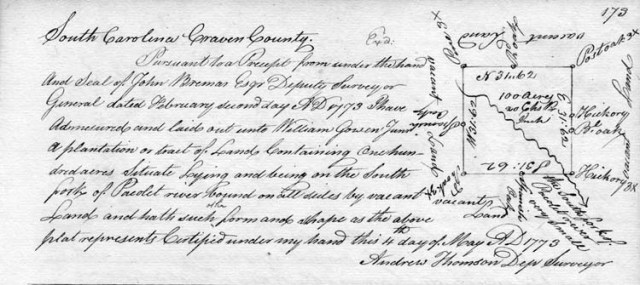 173
South Carolina Craven County.
Pursuant to a Precept from under the hand
And Seal of John Bremar Esqr Deputy Surveyor
General dated February second day AD 1773 I have
Admeasured and laid out unto William Gowen Junr
A plantation or tract of Land Containing One hun-
dred acres Situate Lying and being on the South
fork of Pacolet river bound on all sides by vacant
Land and hath such form and shape as the above
plat represents Certified under my hand this 4th day of May AD 1773
Andrew Thomson Dep Surveyor
vacant Land
Post oak 3x
N 31.62
100 Acres
20 Chs Pr
Inch
E 31.62
W 31.62
S 31.62
Hickory
Hickory 3x
vacant Land
vacant Land
vacant
Land
Branch
The South fork of
Pacolet river
very Small